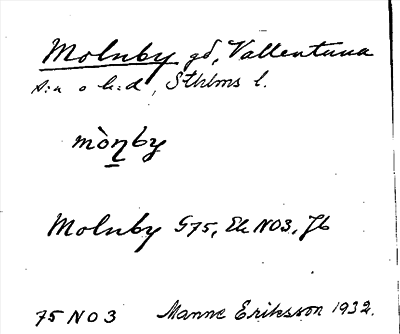 Molnby gd, Vallentuna
s:n o h:d, Sthlms l.
mòṉby
Molnby G75, Ek NO3, Jb
75 NO3 Manne Eriksson 1932.